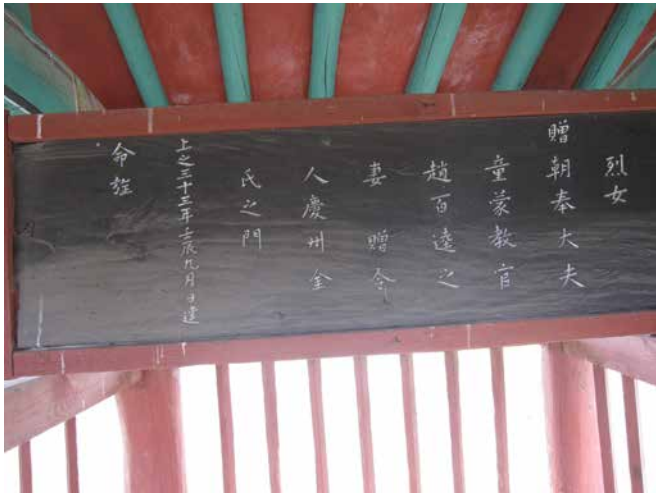 烈女
贈朝奉大夫
童蒙教官
趙百逵之
妻 贈令
人慶州金
氏之門
上之三十三年壬辰九月 日建
命旌